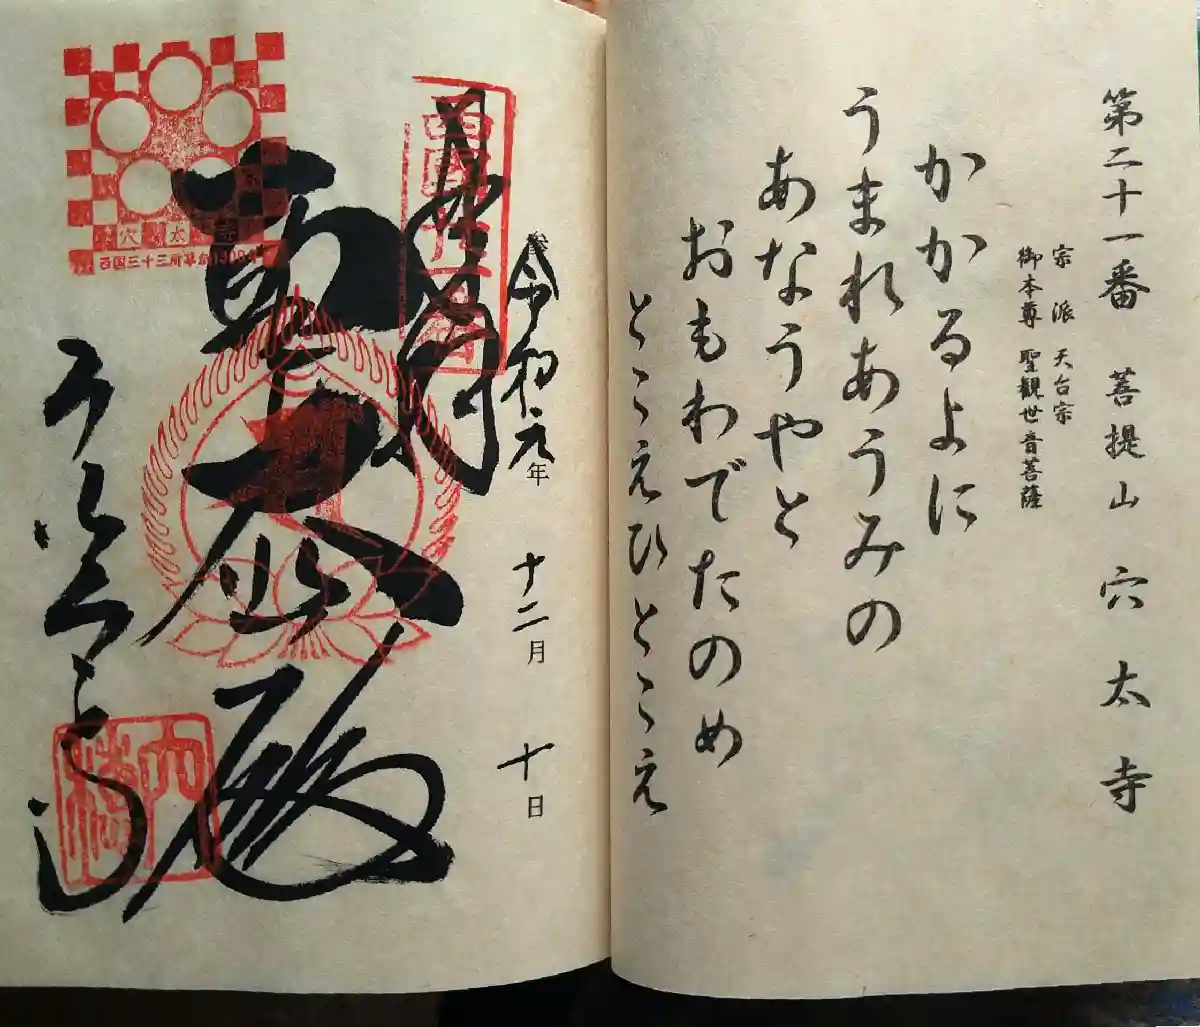 第二十一番 菩提山 穴太寺
宗派 天台宗
御本尊 聖観世音菩薩
かかるよに
うまれあうみの
あなうやと
おもわでたのめ
とこえひとこえ
令和元年 十二月 十日
西国二十一番
聖大悲殿
穴太寺
西国三十三所草創1300年